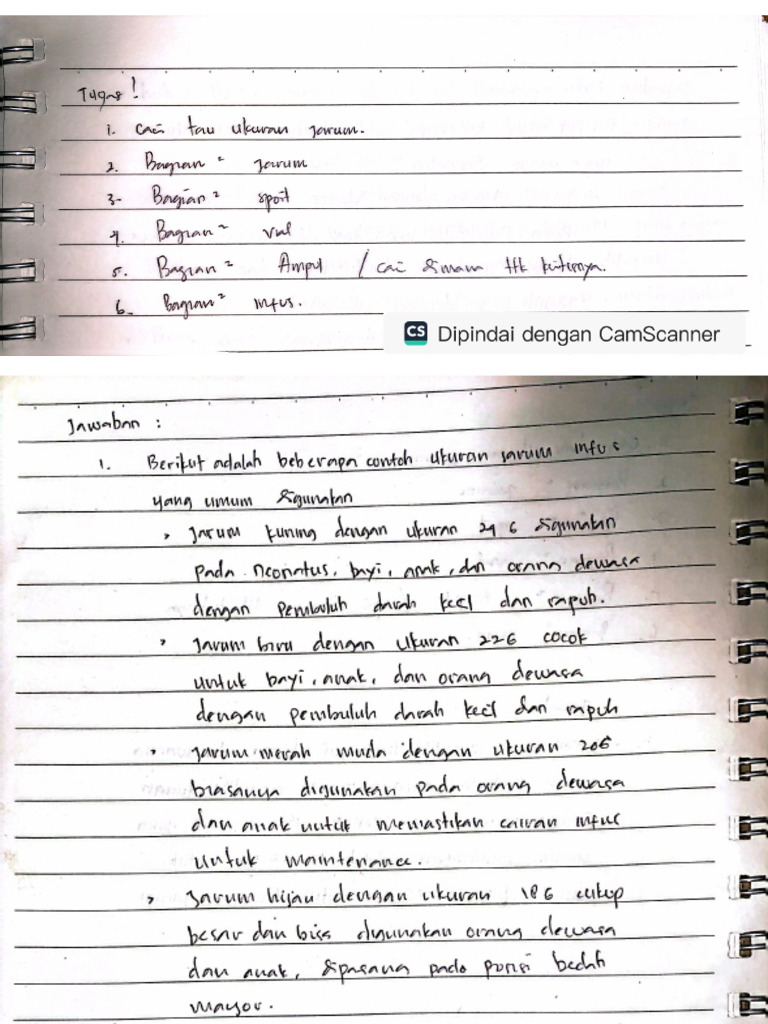 Tugas !
1. Cari tau ukuran jarum.
2. Bagian² jarum
3. Bagian² spoit
4. Bagian² vial
5. Bagian² Ampul / cari dimana ttk kriterinya.
6. Bagian² infus.
CS Dipindai dengan CamScanner
Jawaban :
1. Berikut adalah beberapa contoh ukuran jarum infus
yang umum digunakan
› Jarum kuning dengan ukuran 24 G digunakan
pada neonatus, bayi, anak, dan orang dewasa
dengan pembuluh darah kecil dan rapuh.
› Jarum biru dengan ukuran 22G cocok
untuk bayi, anak, dan orang dewasa
dengan pembuluh darah kecil dan rapuh
› Jarum merah muda dengan ukuran 20G
biasanya digunakan pada orang dewasa
dan anak untuk memastikan cairan infus
untuk maintenance.
› Jarum hijau dengan ukuran 18G cukup
besar dan bisa digunakan orang dewasa
dan anak, dipasang pada porisi bedah
mayor.